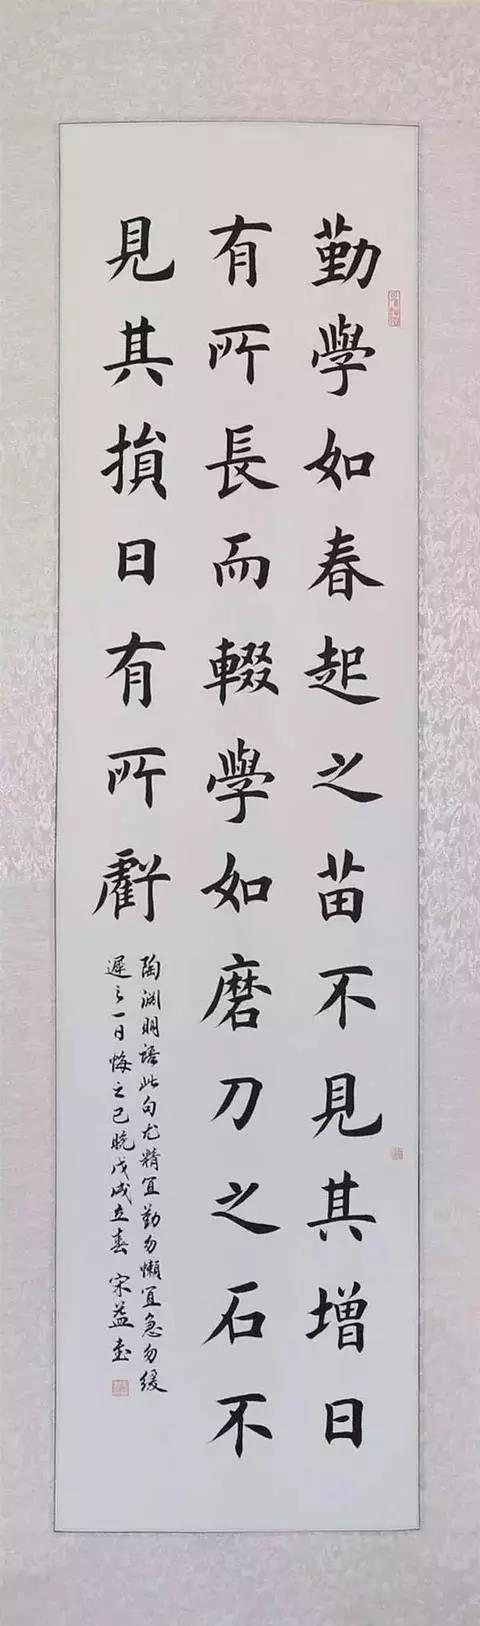 勤學如春起之苗不見其增日
有所長而輟學如磨刀之石不
見其損日有所虧
陶渊明語此句尤精宜勤勿懶宜急勿缓
遲之一日悔之已晚戊戌立春宋益書